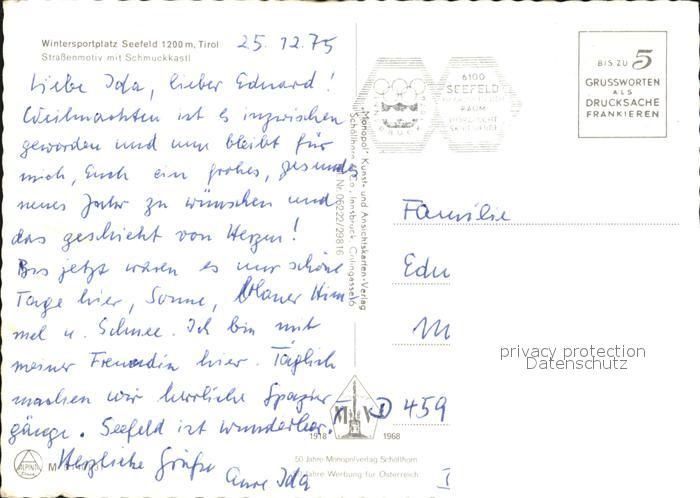 Wintersportplatz Seefeld 1200 m, Tirol
Straßenmotiv mit Schmuckkastl
25.12.75
Liebe Ida, lieber Eduard!
Weihnachten ist es inzwischen
geworden und nun bleibt für
mich, Euch ein frohes, gesundes
neues Jahr zu wünschen und
das geschieht von Herzen!
Bis jetzt waren es nur schöne
Tage hier, Sonne, blauer Him
mel u. Schnee. Ich bin mit
meiner Freundin hier. Täglich
machen wir herrliche Spazier
gänge. Seefeld ist wunderbar.
Herzliche Grüße
Eure Ida
ALPINA
"Monopol" Kunst- und Ansichtskarten-Verlag
Schöllhorn & Co., Innsbruck, Colingasse
Nr. 06222/29816
6100
SEEFELD
RAUM
BIS ZU 5
GRUSSWORTEN
ALS
DRUCKSACHE
FRANKIEREN
Familie
Edu
M
D 459
privacy protection
Datenschutz
1918 1968
50 Jahre Monopolverlag Schöllhorn
Jahre Werbung für Österreich